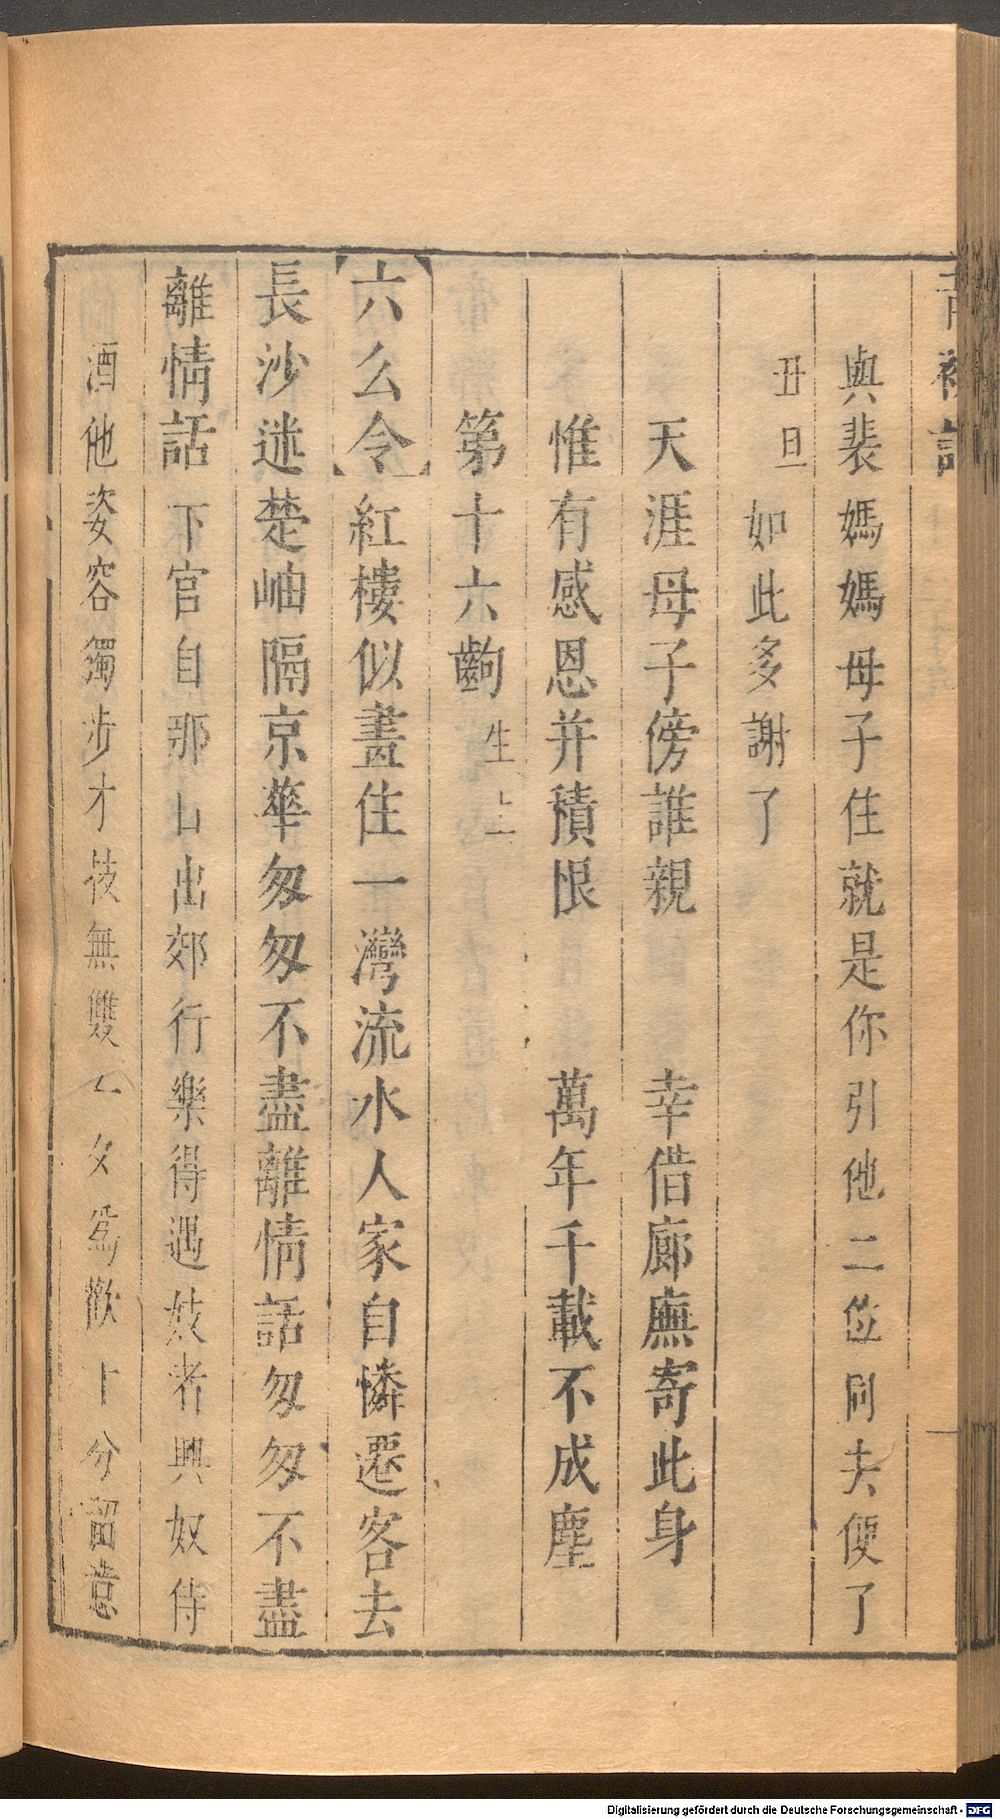 青衫記
與裴媽媽母子住就是你引他二位同去便了
丑旦 如此多謝了
天涯母子傍誰親 幸借廊廡寄此身
惟有感恩并積恨 萬年千載不成塵
第十六齣 生上
【六么令】紅樓似畫住一灣流水人家自憐遷客去
長沙迷楚岫隔京華匆匆不盡離情話匆匆不盡
離情話 下官自那日出郊行樂得遇妓者興奴侍
酒他姿容獨步才技無雙 女爲歡十分留意
Digitalisierung gefördert durch die Deutsche Forschungsgemeinschaft - DFG